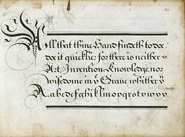 All that thine Hand findeth to doe
doe it quicklie: for there is neither
Art, Invention, Knowledge, nor
Wisedome in yᵉ Grave whither yᵘ
A a b c d e f g h i k l m n o p q r s t v w x y